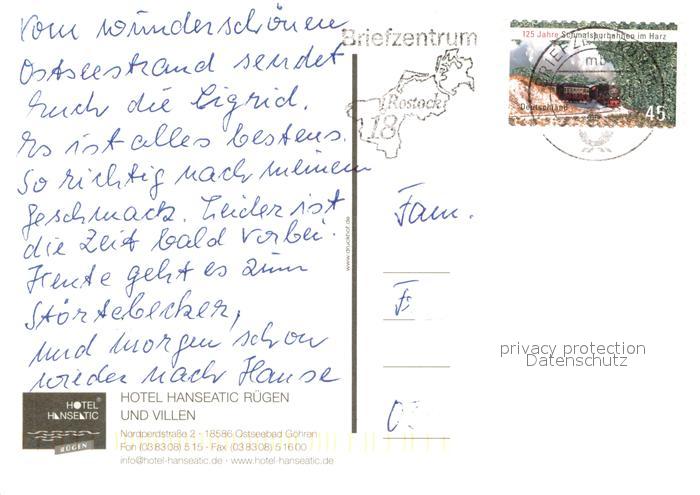 vom wunderschönen
Ostseestrand sendet
Euch die Sigrid.
Es ist alles bestens.
So richtig nach meinem
Geschmack. Leider ist
die Zeit bald vorbei.
Heute geht es zum
Störtebecker,
und morgen schon
wieder nach Hause
HOTEL
HANSEATIC
RÜGEN
HOTEL HANSEATIC RÜGEN
UND VILLEN
Nordperdstraße 2 · 18586 Ostseebad Göhren
Fon (03 83 08) 5 15 · Fax (03 83 08) 5 16 00
info@hotel-hanseatic.de · www.hotel-hanseatic.de
www.druckhof.de
Briefzentrum
Rostock
18
125 Jahre Schmalspurbahnen im Harz
Deutschland
45
BRIEFZ
mb
Fam.
F
privacy protection
Datenschutz